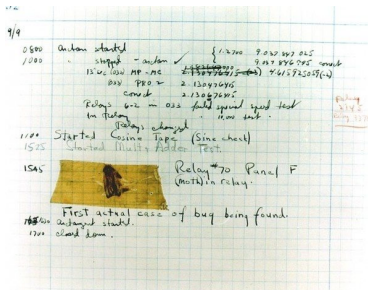 9/9
0800 antan started
1000 " stopped - antan ✓ { 1.2700 9.037 847 025
9.037 846 995 correct
13"uc (032) MP - MC 4.615925059(-2)
(033) PRO 2 2.130476415
correct 2.130676415
Relays 6-2 in 033 failed special speed test
in relay " 10.00 test .
Relays changed
1100 Started Cosine Tape (Sine check)
1525 Started Multi Adder Test.
1545 Relay #70 Panel F
(moth) in relay.
First actual case of bug being found.
1630 antangent started.
1700 closed down.